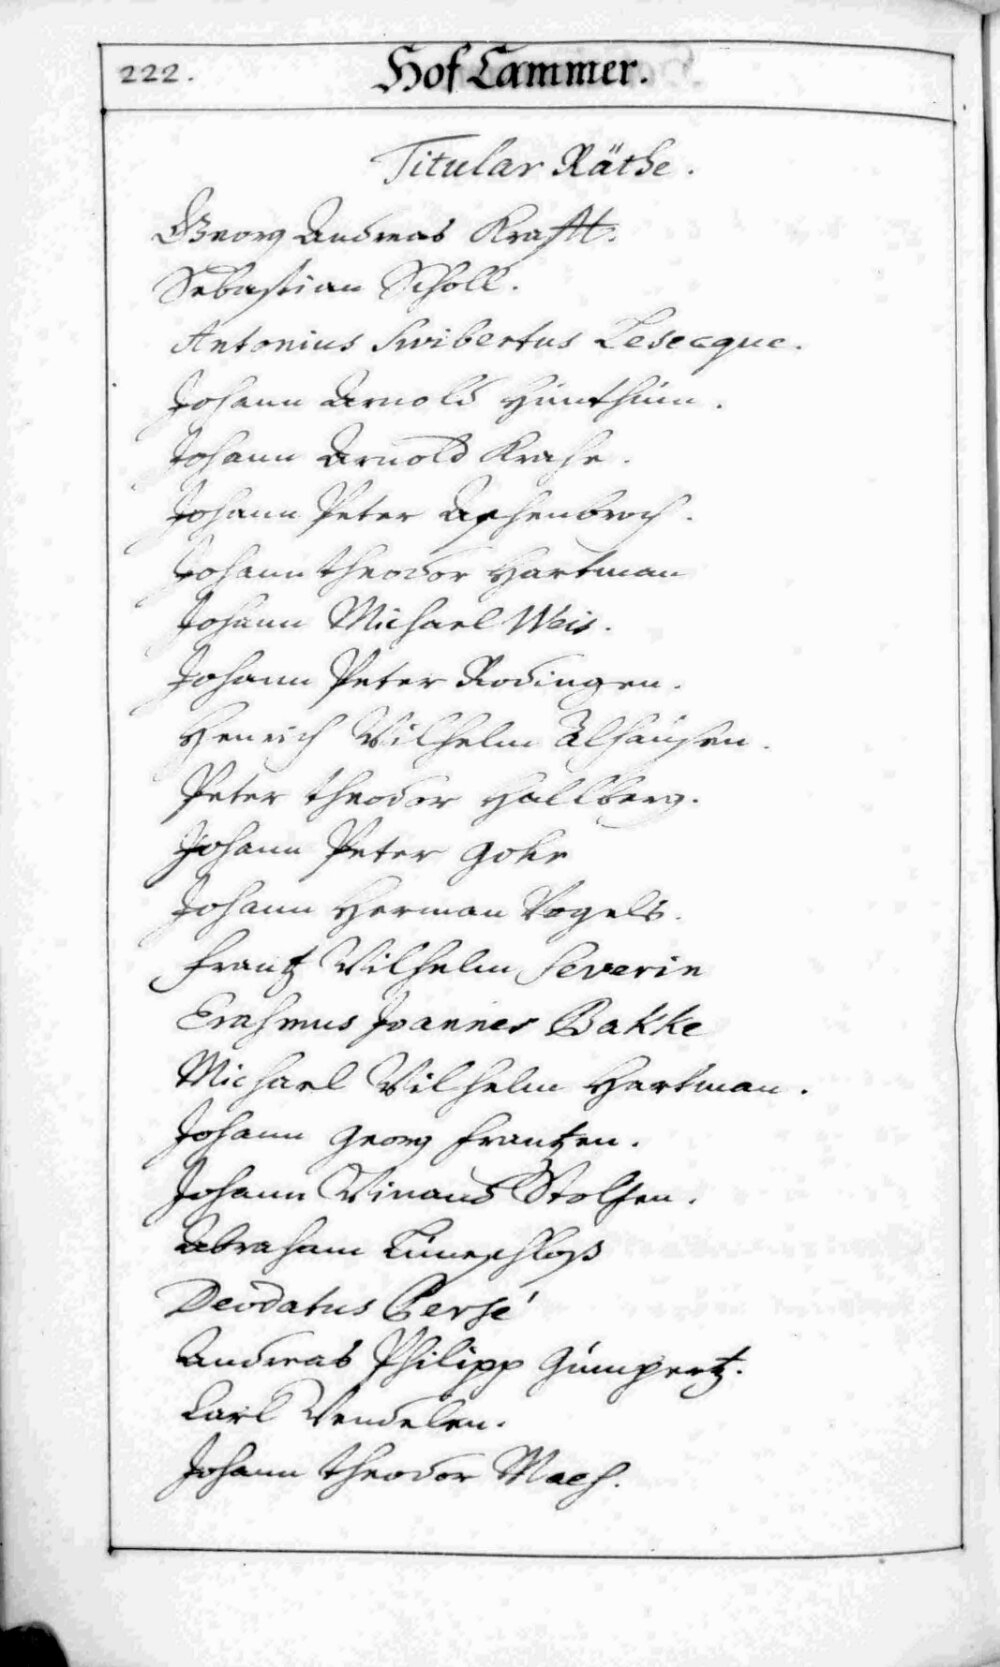 222.
Hof Cammer.
Titular Räthe.
Georg Andreas Krafft.
Sebastian Scholl.
Antonius Swibertus Lesecque.
Johann Arnold Hünthüm.
Johann Arnold Krahe.
Johann Peter Aschenbroch.
Johann Theodor Hartman
Johann Michael Weis.
Johann Peter Rodingen.
Henrich Wilhelm Älhausen.
Peter Theodor Hallberg.
Johann Peter Gohr
Johann Herman Vogels.
Frantz Wilhelm Severin
Erasmus Joannes Bakke
Michael Wilhelm Hartman.
Johann Georg Frantzen.
Johann Winand Stolsen.
Abraham Lüneschloß
Deodatus Persé
Andreas Philipp Gumpertz.
Carl Vendelen.
Johann Theodor Mach.